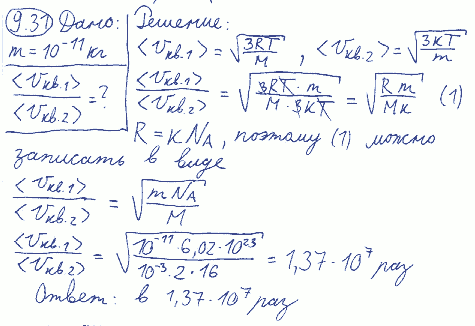 9.31 Дано:
m = 10⁻¹¹ кг
<Vкв.1>/<Vкв.2> = ?
Решение:
<Vкв.1> = √(3RT/M), <Vкв.2> = √(3kT/m)
<Vкв.1>/<Vкв.2> = √(3RT·m/(M·3kT)) = √(Rm/(Mk)) (1)
R = kNA, поэтому (1) можно
записать в виде
<Vкв.1>/<Vкв.2> = √(mNA/M)
<Vкв.1>/<Vкв2> = √(10⁻¹¹·6,02·10²³/(10⁻³·2·16)) = 1,37·10⁷ раз
Ответ: в 1,37·10⁷ раз